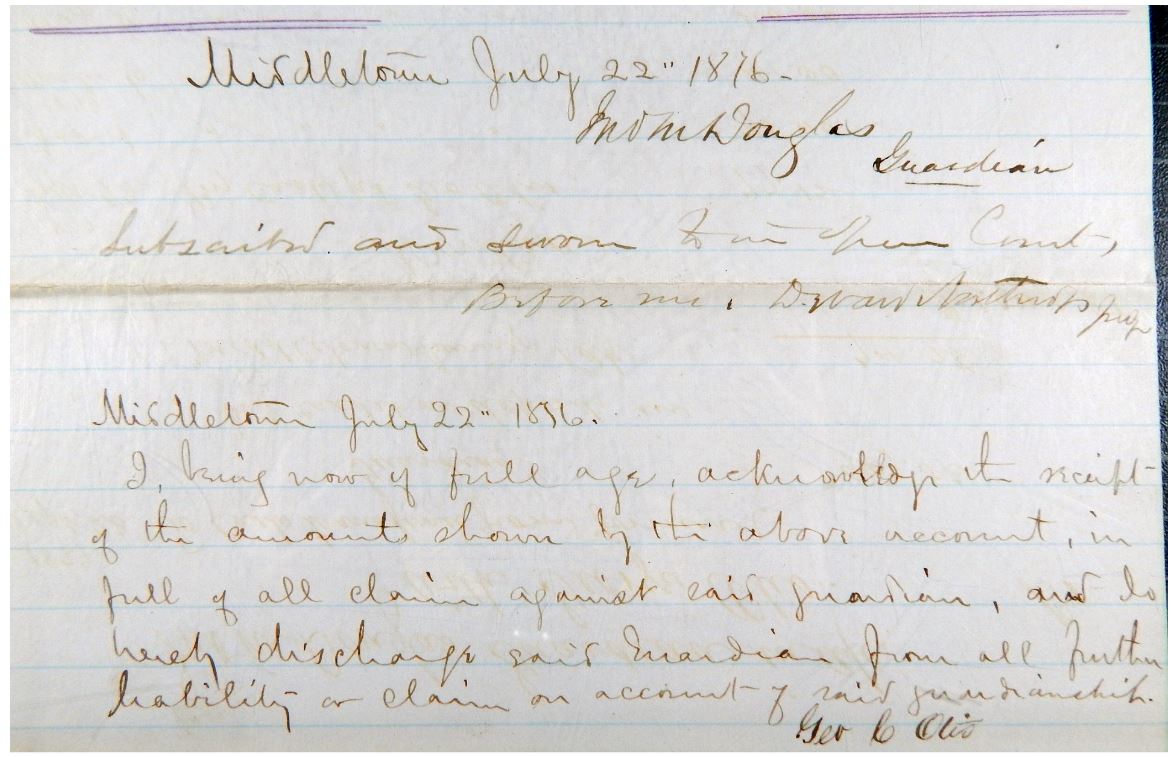 Middletown July 22" 1876.
Jno M Douglas
Guardian
Subscribed and sworn to in open Court,
Before me, D. Ward Northrop Judge
Middletown July 22" 1876.
I, being now of full age, acknowledge the receipt
of the amounts shown by the above account, in
full of all claim against said guardian, and do
hereby discharge said Guardian from all further
liability or claim on account of said guardianship.
Geo C Otis